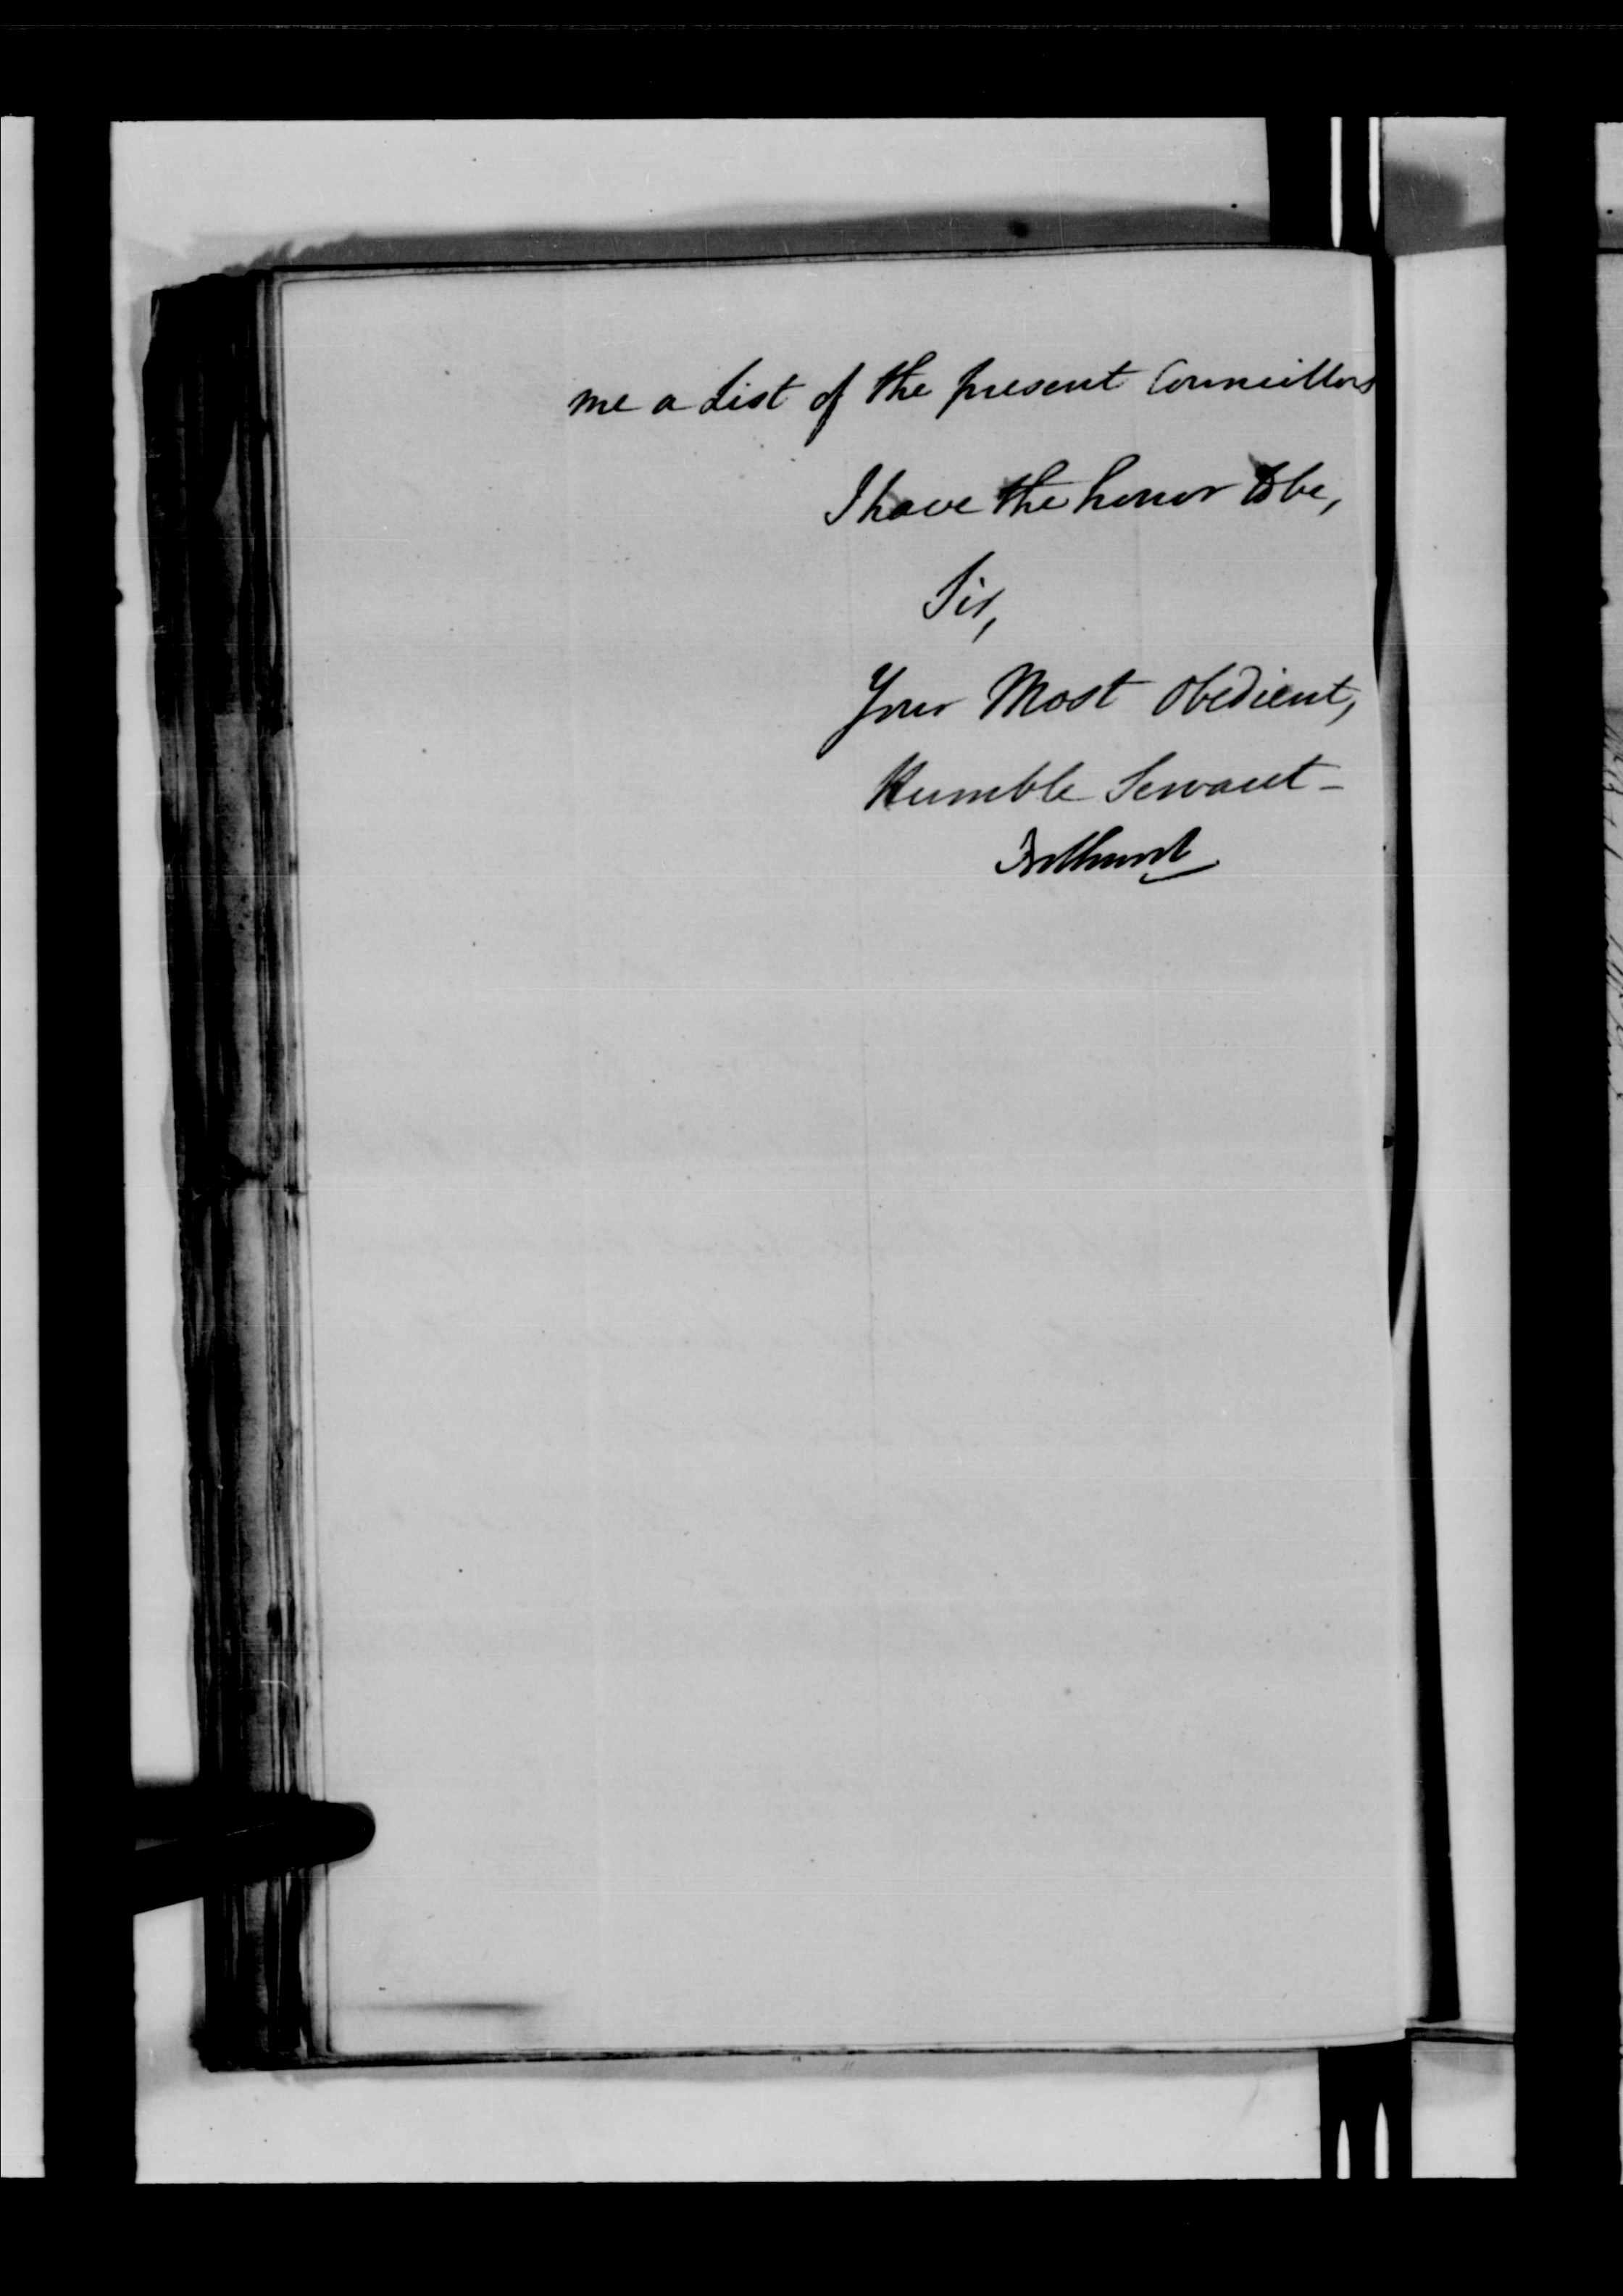 me a List of the present Councillors
I have the honor to be,
Sir,
Your Most Obedient,
Humble Servant -
Bathurst